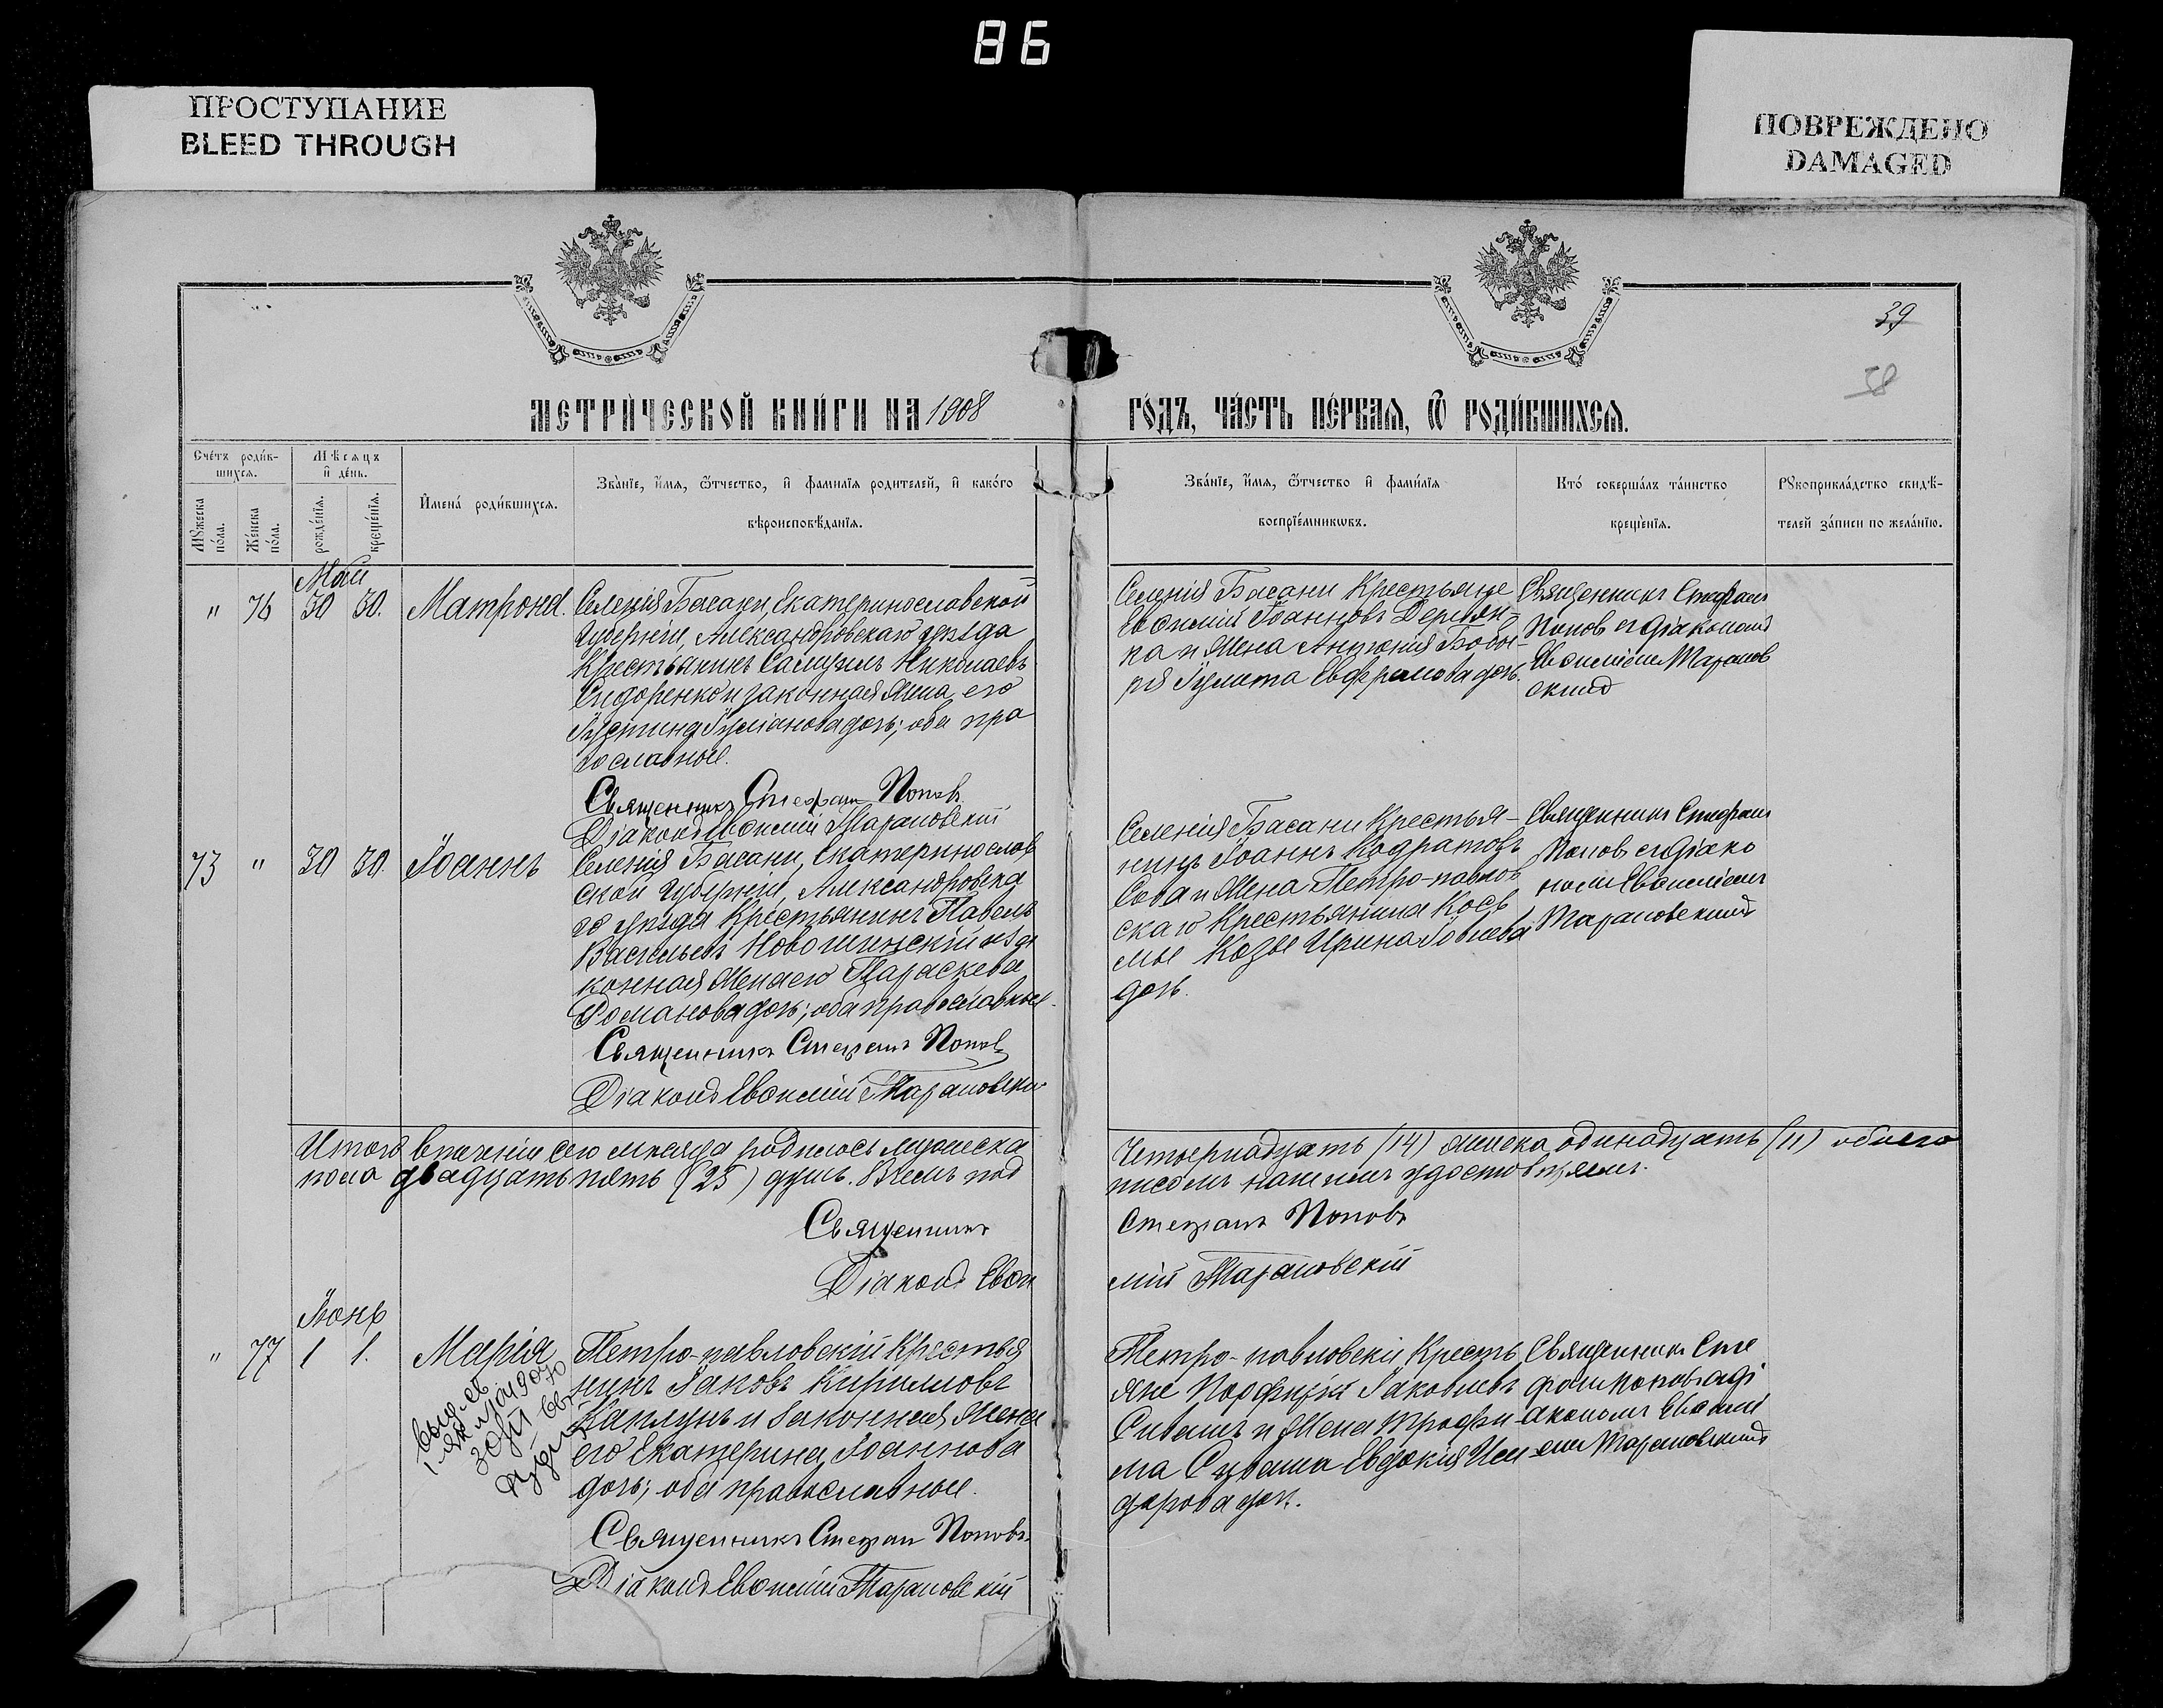 86
ПРОСТУПАНИЕ
BLEED THROUGH
ПОВРЕЖДЕНО
DAMAGED
39
38
МЕТРИ́ЧЕСКОЙ КНИ́ГИ НА 1908
ГО́ДЪ, ЧА́СТЬ ПЕ́РВАЯ, Ѿ РОДИ́ВШИХСЯ.
Счетъ роди́в-
шихся.
Мѣсяцъ
и де́нь.
Мꙋжеска
по́ла.
Же́нска
по́ла.
рожде́нїя.
креще́нїя.
Имена́ роди́вшихся.
Зва́нїе, и́мя, ѻ́тчество, и фами́лїя родителей, и како́го
вѣроисповѣ́данїя.
Зва́нїе, и́мя, ѻ́тчество и фами́лїя
воспрїе́мникѡвъ.
Кто́ соверша́лъ та́инство
креще́нїя.
Рꙋкоприкла́дство свидѣ́-
телей за́писи по жела́нїю.
Май
" 76 30 30. Матрона.
Селенія Басани, Екатеринославской
Губерніи, Александровскаго уѣзда
Крестьянинъ Самуилъ Николаевъ
Сидоренко и законная жена его
Іустина Іуліанова дочь; оба пра
вославные.
Священникъ Стефан Попов
Діаконъ Евѳимій Тарановскій
Селенія Басани Крестьяне
Евѳимій Іоанновъ Дермен-
ка и жена Антонія Бобы-
ря Іулита Ефремова дочь.
Священникъ Стефанъ
Попов съ діакономъ
Евѳиміемъ Таранов
скимъ
73 " 30 30. Іоаннъ
Селенія Басани, Екатеринослав
ской Губерніи, Александровска
го уѣзда Крестьянинъ Павелъ
Васильевъ и за
конная жена его Параскева
Романова дочь; оба православные.
Священникъ Стефанъ Попов
Діаконъ Евѳимій Тарановскій
Селенія Басани Крестья-
нинъ Іоаннъ Кодратовъ
Сова и жена Петро-павлов
скаго Крестьянина Кось
мы Козы Ирина Іовлева
дочь.
Священникъ Стефанъ
Попов съ діако
номъ Евѳиміемъ
Тарановскимъ
Итого в теченіи сего мѣсяца родилось мужеска
пола двадцать пять (25) душъ. В чемъ под
Четырнадцать (14) женска одинадцать (11) обоего
писомъ нашимъ удостовѣряемъ.
Священникъ
Стефанъ Поповъ
Діаконъ Евѳи
мій Тарановскій
Іюнь
" 77 1 1. Марія
Петро-павловскій Крестья
нинъ Іаковъ Кирилловъ
Каплунъ и законная жена
его Екатерина Іоаннова
дочь; оба православные.
Священникъ Стефан Поповъ.
Діаконъ Евѳимій Тарановскій
Петро-павловскіи Кресть
яне Порфирій Іаковлевъ
Сиваш и жена Трофи
ма Суваша Евдокія Иси
дорова доч.
Священникъ Сте
фан Поповъ с ді
акономъ Евѳимі
емъ Тарановскимъ